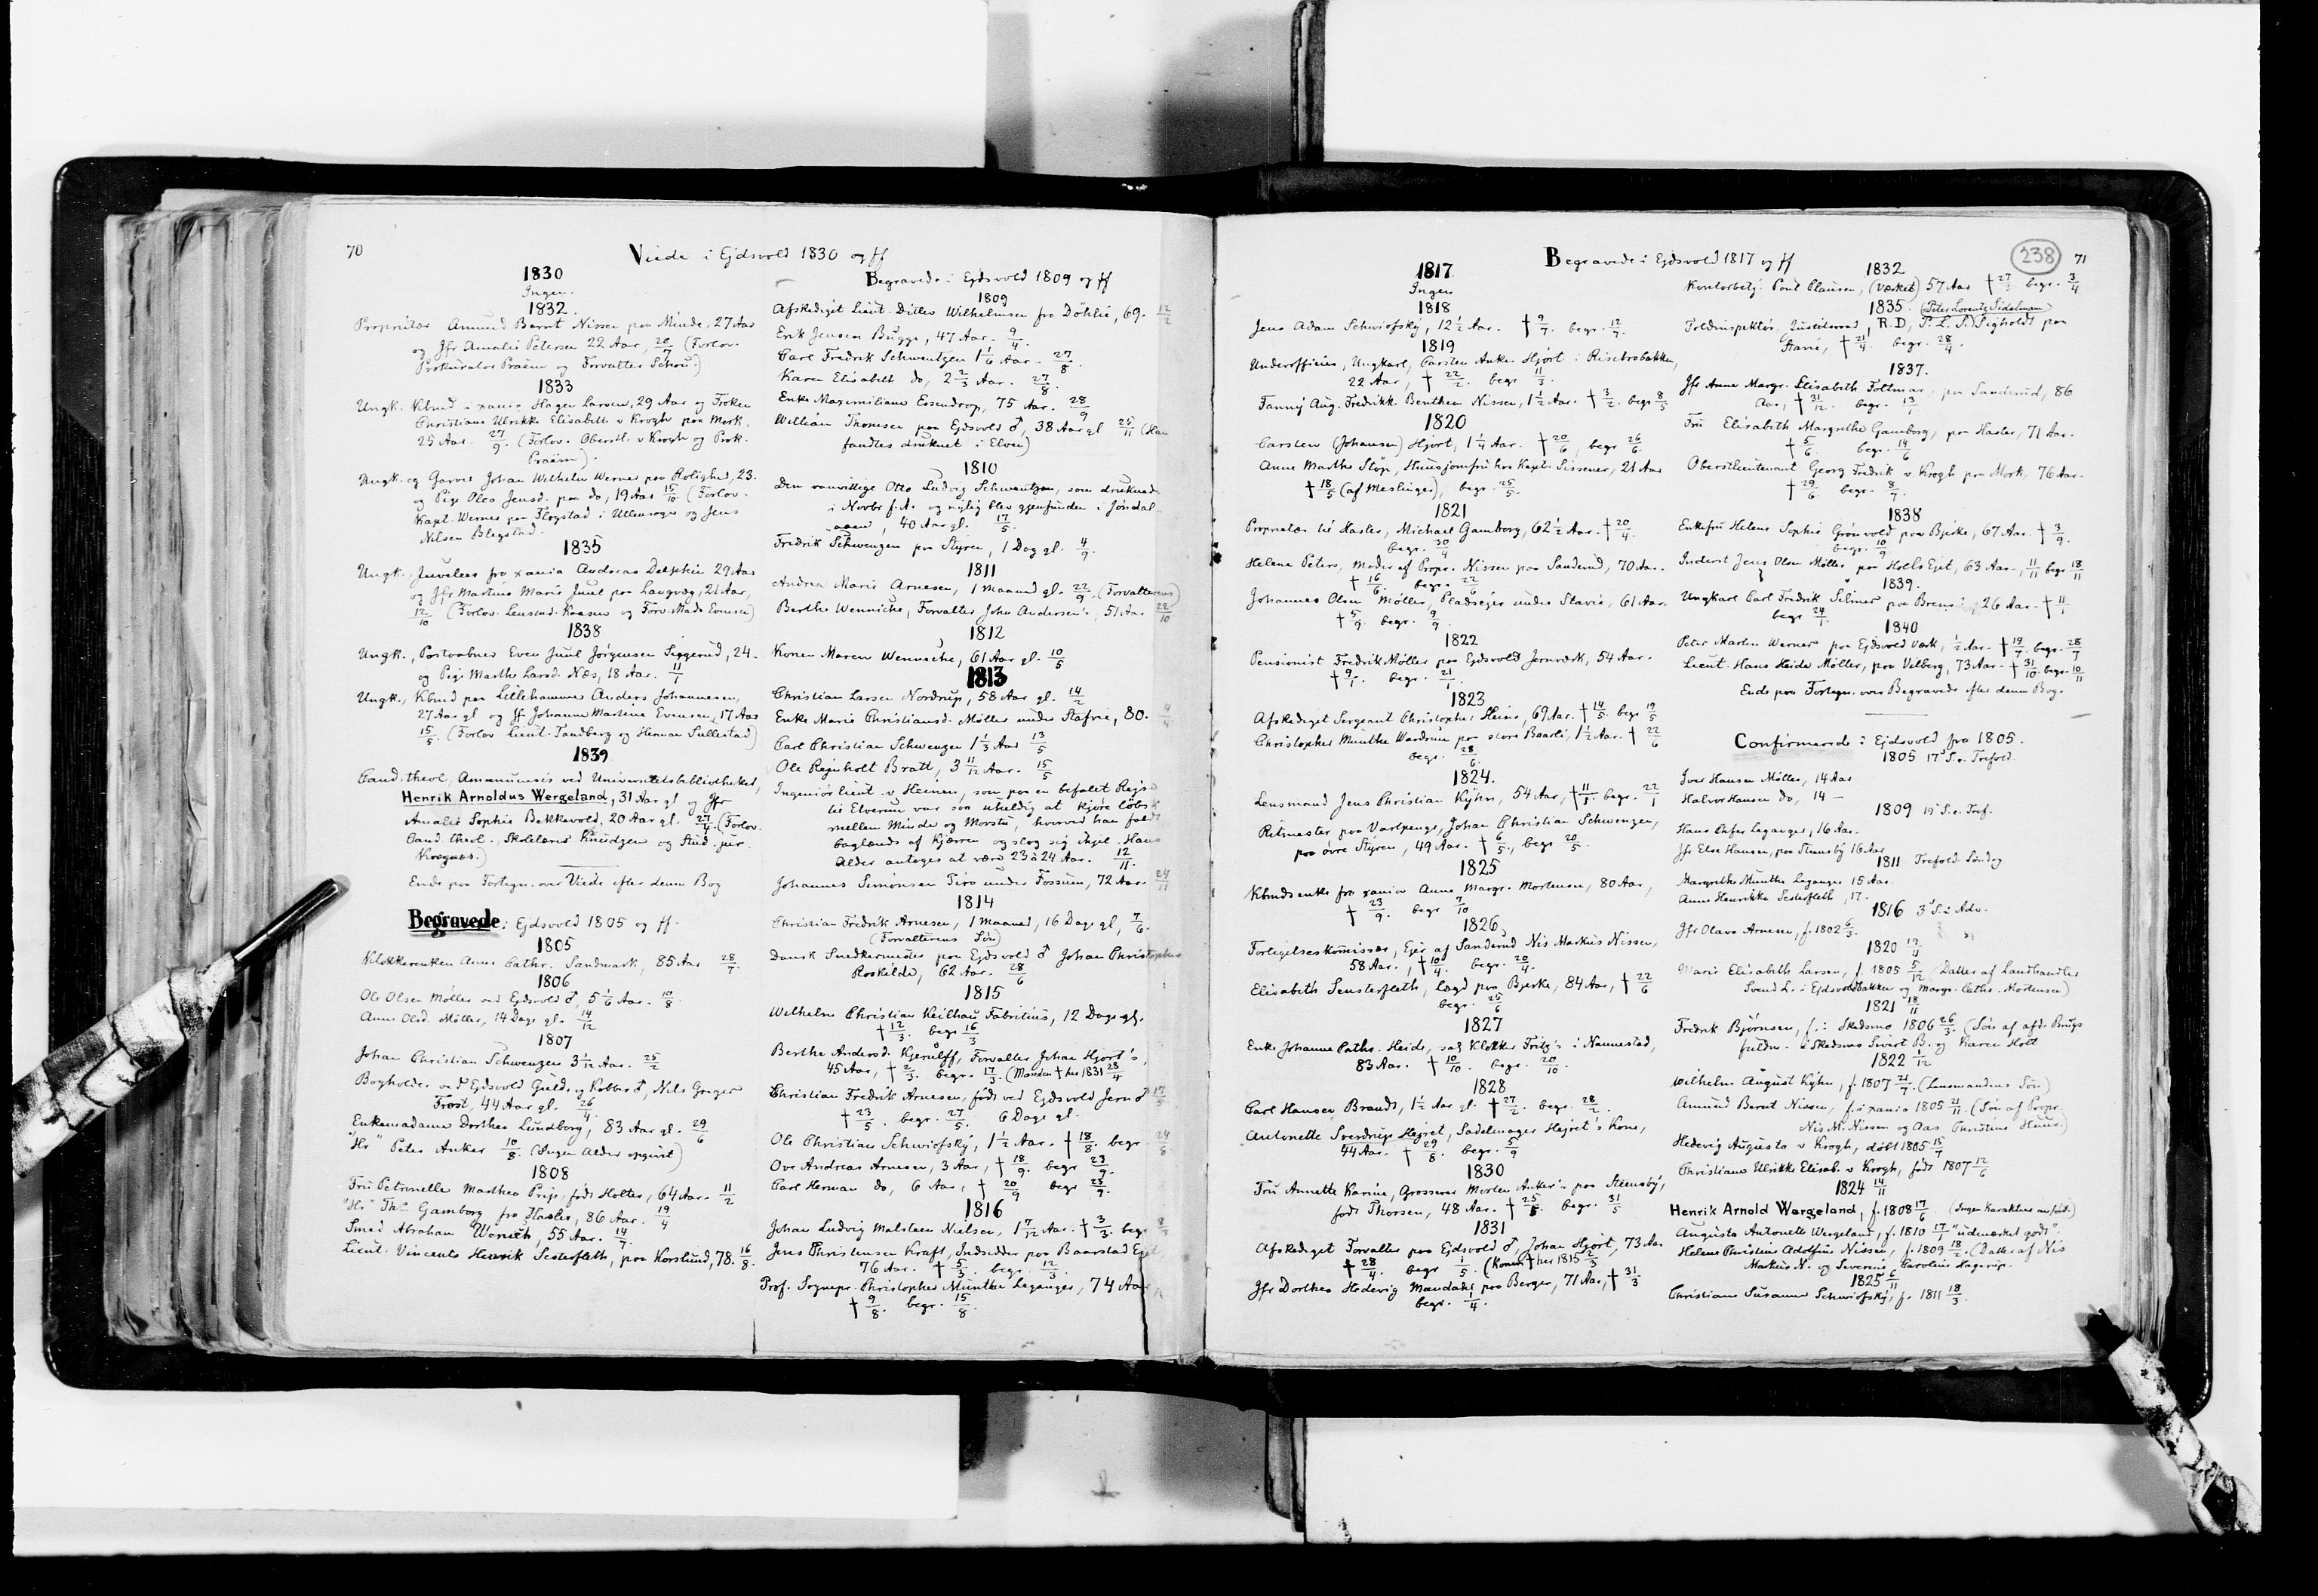 70
Viede i Ejdsvold 1830 og ff
1830
Ingen.
1832.
Proprietær Amund Bernt Nissen paa Minde, 27 Aar
og Jfr Amalie Petersen 22 Aar, 20/7 (Forlov.
Prokurator Praëm og Forvalter Schou.)
1833
Ungk. Kbmd i Xania Hagen Larsen, 29 Aar og Frøken
Christiane Ulrikke Elisabeth v Krogh paa Mork,
25 Aar. 27/9. (Forlov. Oberstl. v Krogh og Prok.
Praëm).
Ungk. og Garver Johan Wilhelm Werner paa Rolighed, 23.
og Pige Olea Jensd. paa do, 19 Aar 15/10 (Forlov.
Kapt. Werner paa Flogstad i Ullensager og Jens
Nilsen Blegstad.
1835
Ungk., Juveleer fra Xania Andreas Delphin 29 Aar
og Jfr Martine Marie Juul paa Langvæg, 21 Aar,
12/10 (Forlov. Lensmd. Kaasen og Forv. Mads Evensen)
1838
Ungk., Postaabner Even Juul Jørgensen Seggerud, 24.
og Pige Marthe Larsd. Næs, 18 Aar. 11/1
Ungk., Kbmd paa Lillehammer Anders Johannesen,
27 Aar gl og Jfr Johanne Martine Evensen, 17 Aar
15/5. (Forlov Lieut. Sandberg og Herman Sullestad)
1839
Cand. theol, Amanuensis ved Universitetsbibliotheket,
Henrik Arnoldus Wergeland, 31 Aar gl og Jfr
Amalie Sophie Bekkevold, 20 Aar gl. 27/4. (Forlov.
Cand. theol. Skolelærer Knudzen og Stud. jur.
Kragnæs.)
Ende paa Fortegn. over Viede efter denne Bog
Begravede i Ejdsvold 1805 og ff.
1805
Klokkerenken Anne Cathr. Sandmark, 85 Aar 28/7.
1806
Ole Olsen Møller ved Ejdsvold ♂, 5 1/6 Aar. 10/8
Anne Olsd. Møller, 14 Dage gl. 14/12
1807
Johan Christian Schwenzen 3 1/12 Aar. 25/2
Bogholder ved Ejdsvold Guld- og Kobber ♂, Nils Greger
Frost, 44 Aar gl. 26/4.
Enkemadame Dorthea Lundborg, 83 Aar gl. 29/6
"Hr" Peter Anker 10/8. (Ingen Alder opgivet)
1808
Fru Petronelle Marthea Prip, født Holter, 64 Aar. 11/2
"Hr." Ths Gamborg fra Hasler, 86 Aar. 19/4
Smed Abraham Wernich, 55 Aar. 14/7.
Lieut. Vincents Henrik Sesterfleth, paa Korslund, 78. 16/8.
Begravede i Ejdsvold 1809 og ff
1809
Afskediget Lieut. Ditlev Wilhelmsen fra Døhlie, 69. 12/2
Erik Jensen Bugge, 47 Aar. 9/4.
Carl Fredrik Schwentzen 1 1/6 Aar. 27/8
Karen Elisabeth do, 2 2/3 Aar. 27/8.
Enke Maximiliane Essendrop, 75 Aar. 28/9
William Thomesen paa Ejdsvold ♂, 38 Aar gl 25/11 (Han
fandtes druknet i Elven)
1810
Den vanvittige Otto Ludvig Schwentzen, som druknede
i Novbr f.A. og nylig blev gjenfunden i Jøndal-
aaen, 40 Aar gl. 17/5.
Fredrik Schwenzen paa Styren, 1 Dag gl. 4/9.
1811
Andrea Marie Arnesen, 1 Maaned gl. 22/9. (Forvalterens)
Berthe Wenniche, Forvalter John Andersen's, 51 Aar 22/10
1812
Konen Maren Wenniche, 61 Aar gl. 10/5
1813
Christian Larsen Nordrup, 58 Aar gl. 14/2
Enke Marie Christiansd. Møller under Stafrie, 80.
Carl Christian Schwenzen 1 1/3 Aar 13/5
Ole Rejnholt Bratt, 3 11/12 Aar. 15/5
Ingeniør lieut. v Heinen, som paa en befalet Rejse
til Elverum var saa uheldig at kjøre løbsk
mellem Minde og Morstu, hvorved han faldt
baglænds af Kjærren og slog sig ihjel. Hans
Alder antages at være 23 à 24 Aar. 12/11.
Johannes Simonsen Tiro under Fossum, 72 Aar. 24/11
1814
Christian Fredrik Arnesen, 1 Maaned, 16 Dage gl, 7/6.
(Forvalterens Søn)
Dansk Snedkersvend paa Ejdsvold ♂ Johan Christopher
Roskilde, 62 Aar. 28/6
1815
Wilhelm Christian Keilhau Fabritius, 12 Dage gl.
† 12/3. begr 16/3
Berthe Andersd. Kjerulff, Forvalter Johan Hjort's,
45 Aar, † 2/3. begr. 17/3. (Manden † her 1831 28/4
Christian Fredrik Arnesen, født ved Ejdsvold Jern ♂ 17/5
† 23/5. begr. 27/5. 6 Dage gl.
Ole Christian Schwiofsky, 1 1/2 Aar. † 18/8. begr 24/8
Ove Andreas Arnesen, 3 Aar, † 18/9. begr 23/9.
Carl Herman do, 6 Aar, † 20/9 begr 23/9.
1816
Johan Ludvig Malstaen Nielsen, 1 7/12 Aar. † 3/3. begr
Jens Christensen Kraft, Indsidder paa Baarstad Ejet,
76 Aar. † 5/3. begr. 12/3.
Prof. Sognepr. Christopher Munthe Leganger, 74 Aar
† 9/8. begr. 15/8.
Begravede i Ejdsvold 1817 og ff
238
71
1817.
Ingen
1818
Jens Adam Schwiofsky, 12 1/2 Aar. † 9/7. begr. 12/7.
1819
Underofficier, Ungkarl, Carsten Anker Hjort i Risebrobakken,
22 Aar, † 22/2. begr 11/3.
Fanny Aug. Fredrikke Benthen Nissen, 1 1/2 Aar. † 3/2. begr 8/5
1820
Carsten (Johansen) Hjort, 1 1/4 Aar. † 20/6, begr 26/6
Anne Marthe Sløp, Huusjomfru hos Kapt. Sissener, 21 Aar
† 18/5 (af Meslinger), begr. 25/5.
1821
Proprietær til Hasler, Michael Gamborg, 62 1/2 Aar. † 20/4.
begr. 30/4
Helene Peters, Moder af Propr. Nissen paa Sanderud, 70 Aar.
† 16/6. begr. 22/6
Johannes Olsen Møller, Pladsejer under Stavrie, 61 Aar.
† 5/9. begr. 9/9.
1822
Pensionist Fredrik Møller paa Ejdsvold Jernværk, 54 Aar.
† 9/1. begr. 21/1.
1823
Afskediget Sergeant Christopher Heine, 69 Aar. † 14/5. begr 19/5
Christopher Munthe Wardrum paa store Baarli, 1 1/2 Aar. † 22/6
begr. 28/6.
1824.
Lensmand Jens Christian Kyhn, 54 Aar, † 11/1. begr. 22/1
Ritmester paa Vartpenge, Johan Christian Schwenzen,
paa øvre Styren, 49 Aar. † 6/5., begr 20/5.
1825
Kbmdsenke fra Xania Anne Margr. Mortensen, 80 Aar,
† 23/9. begr 7/10
1826
Forligelseskomissær, Ejer af Sanderud Nis Markus Nissen,
58 Aar., † 10/4. begr. 20/4.
Elisabeth Sensterfleth, Lægd paa Bjerke, 84 Aar, † 22/6
begr. 25/6
1827
Enke Johanne Cathr. Heide, sal Klokker Fritz's i Nannestad,
83 Aar. † 10/10. begr. 20/10.
1828
Carl Hansen Brandt, 1 1/2 Aar gl. † 27/2. begr. 28/2.
Antonette Sverdrup Højret, Sadelmager Højret's Kone,
44 Aar. † 29/8. begr. 5/9
1830
Fru Annette Karine, Grosserer Morten Anker's paa Steensby,
født Thorsen, 48 Aar. † 25/5. begr. 31/5
1831
Afskediget Forvalter paa Ejdsvold ♂, Johan Hjort, 73 Aar
† 28/4. begr 1/5. (Konen † her 1815 2/3
Jfr Dorthea Hedevig Mandahl paa Berger, 71 Aar, † 31/3
begr. 1/4.
1832
Kontorbetj. Poul Clausen, (Værket) 57 Aar † 27/3 begr. 3/4
1835. (Peter Lorentz Sidelmann
Toldinspektør, Justitsraad, R.D, P. L. S. Sigholdt paa
Stavrie, † 21/4. begr. 28/4.
1837.
Jfr Anne Margr. Elisabeth Follmar, paa Sanderud, 86
Aar, † 31/12. begr. 13/1.
Fru Elisabeth Margrethe Gamborg, paa Hasler, 71 Aar.
† 5/6. begr. 14/6
Oberstlieutenant Georg Fredrik v Krogh paa Mork, 76 Aar.
† 29/6. begr. 8/7.
1838
Enkefru Helene Sophie Grønvold paa Bjerke, 67 Aar. † 3/9.
begr. 10/9.
Inderst Jens Olsen Møller paa Hols Ejet, 63 Aar., 11/11 begr 18/11
1839.
Ungkarl Carl Fredrik Silmer paa Brensi, 26 Aar. † 11/1
begr 24/1.
1840
Peter Marten Werner paa Ejdsvold Værk, 1/2 Aar. † 19/7. begr. 28/7
Lieut. Hans Heide Møller, paa Vilberg, 73 Aar. † 31/10. begr. 10/11
Ende paa Fortegn. over Begravede efter denne Bog.
Confirmerede i Ejdsvold fra 1805.
1805 17 S. e. Trefold.
Iver Hansen Møller, 14 Aar
Halvor Hansen do, 14 —
1809 19 S. e. Tref.
Hans Christ Leganger, 16 Aar.
Jfr Else Hansen, paa Steensby 16 Aar
1811 Trefold. Søndag
Margrethe Munthe Leganger 15 Aar
Anne Henrikke Sesterfleth, 17.
1816 3 S. i Adv.
Jfr Olava Arnesen, f. 1802 6/3.
1820 19/11
Marie Elisabeth Larsen, f. 1805 5/12 (Datter af Landhandler
Svend L. i Ejdsvoldbakken og Margr. Cathr. Mortensen)
1821 18/11
Fredrik Bjørnsen, f. i Skedsmo 1806 26/3. (Søn af afd. Brugs
fuldm. i Skedsmo Sivert B. og Karen Holt
1822 1/12
Wilhelm August Kyhn, f. 1807 21/7. (Lensmandens Søn)
Amund Bernt Nissen, f. i Xania 1805 21/11. (Søn af Propr.
Nis M. Nissen og Aas Christine Huus.)
Hedevig Augusta v Krogh, døbt 1805 15/7
Christiane Ulrikke Elisab. v Krogh, født 1807 12/6
1824 14/11
Henrik Arnold Wergeland, f. 1808 17/6 (Ingen Karakter anført.)
Augusta Antonette Wergeland, f. 1810 17/1 "udmærket godt".
Helene Christine Adolfine Nissen, f. 1809 18/2. (Datter af Nis
Markus N. og Severine Caroline Hagerup.
1825 6/11
Christiane Susanne Schwiofsky, f. 1811 18/3.